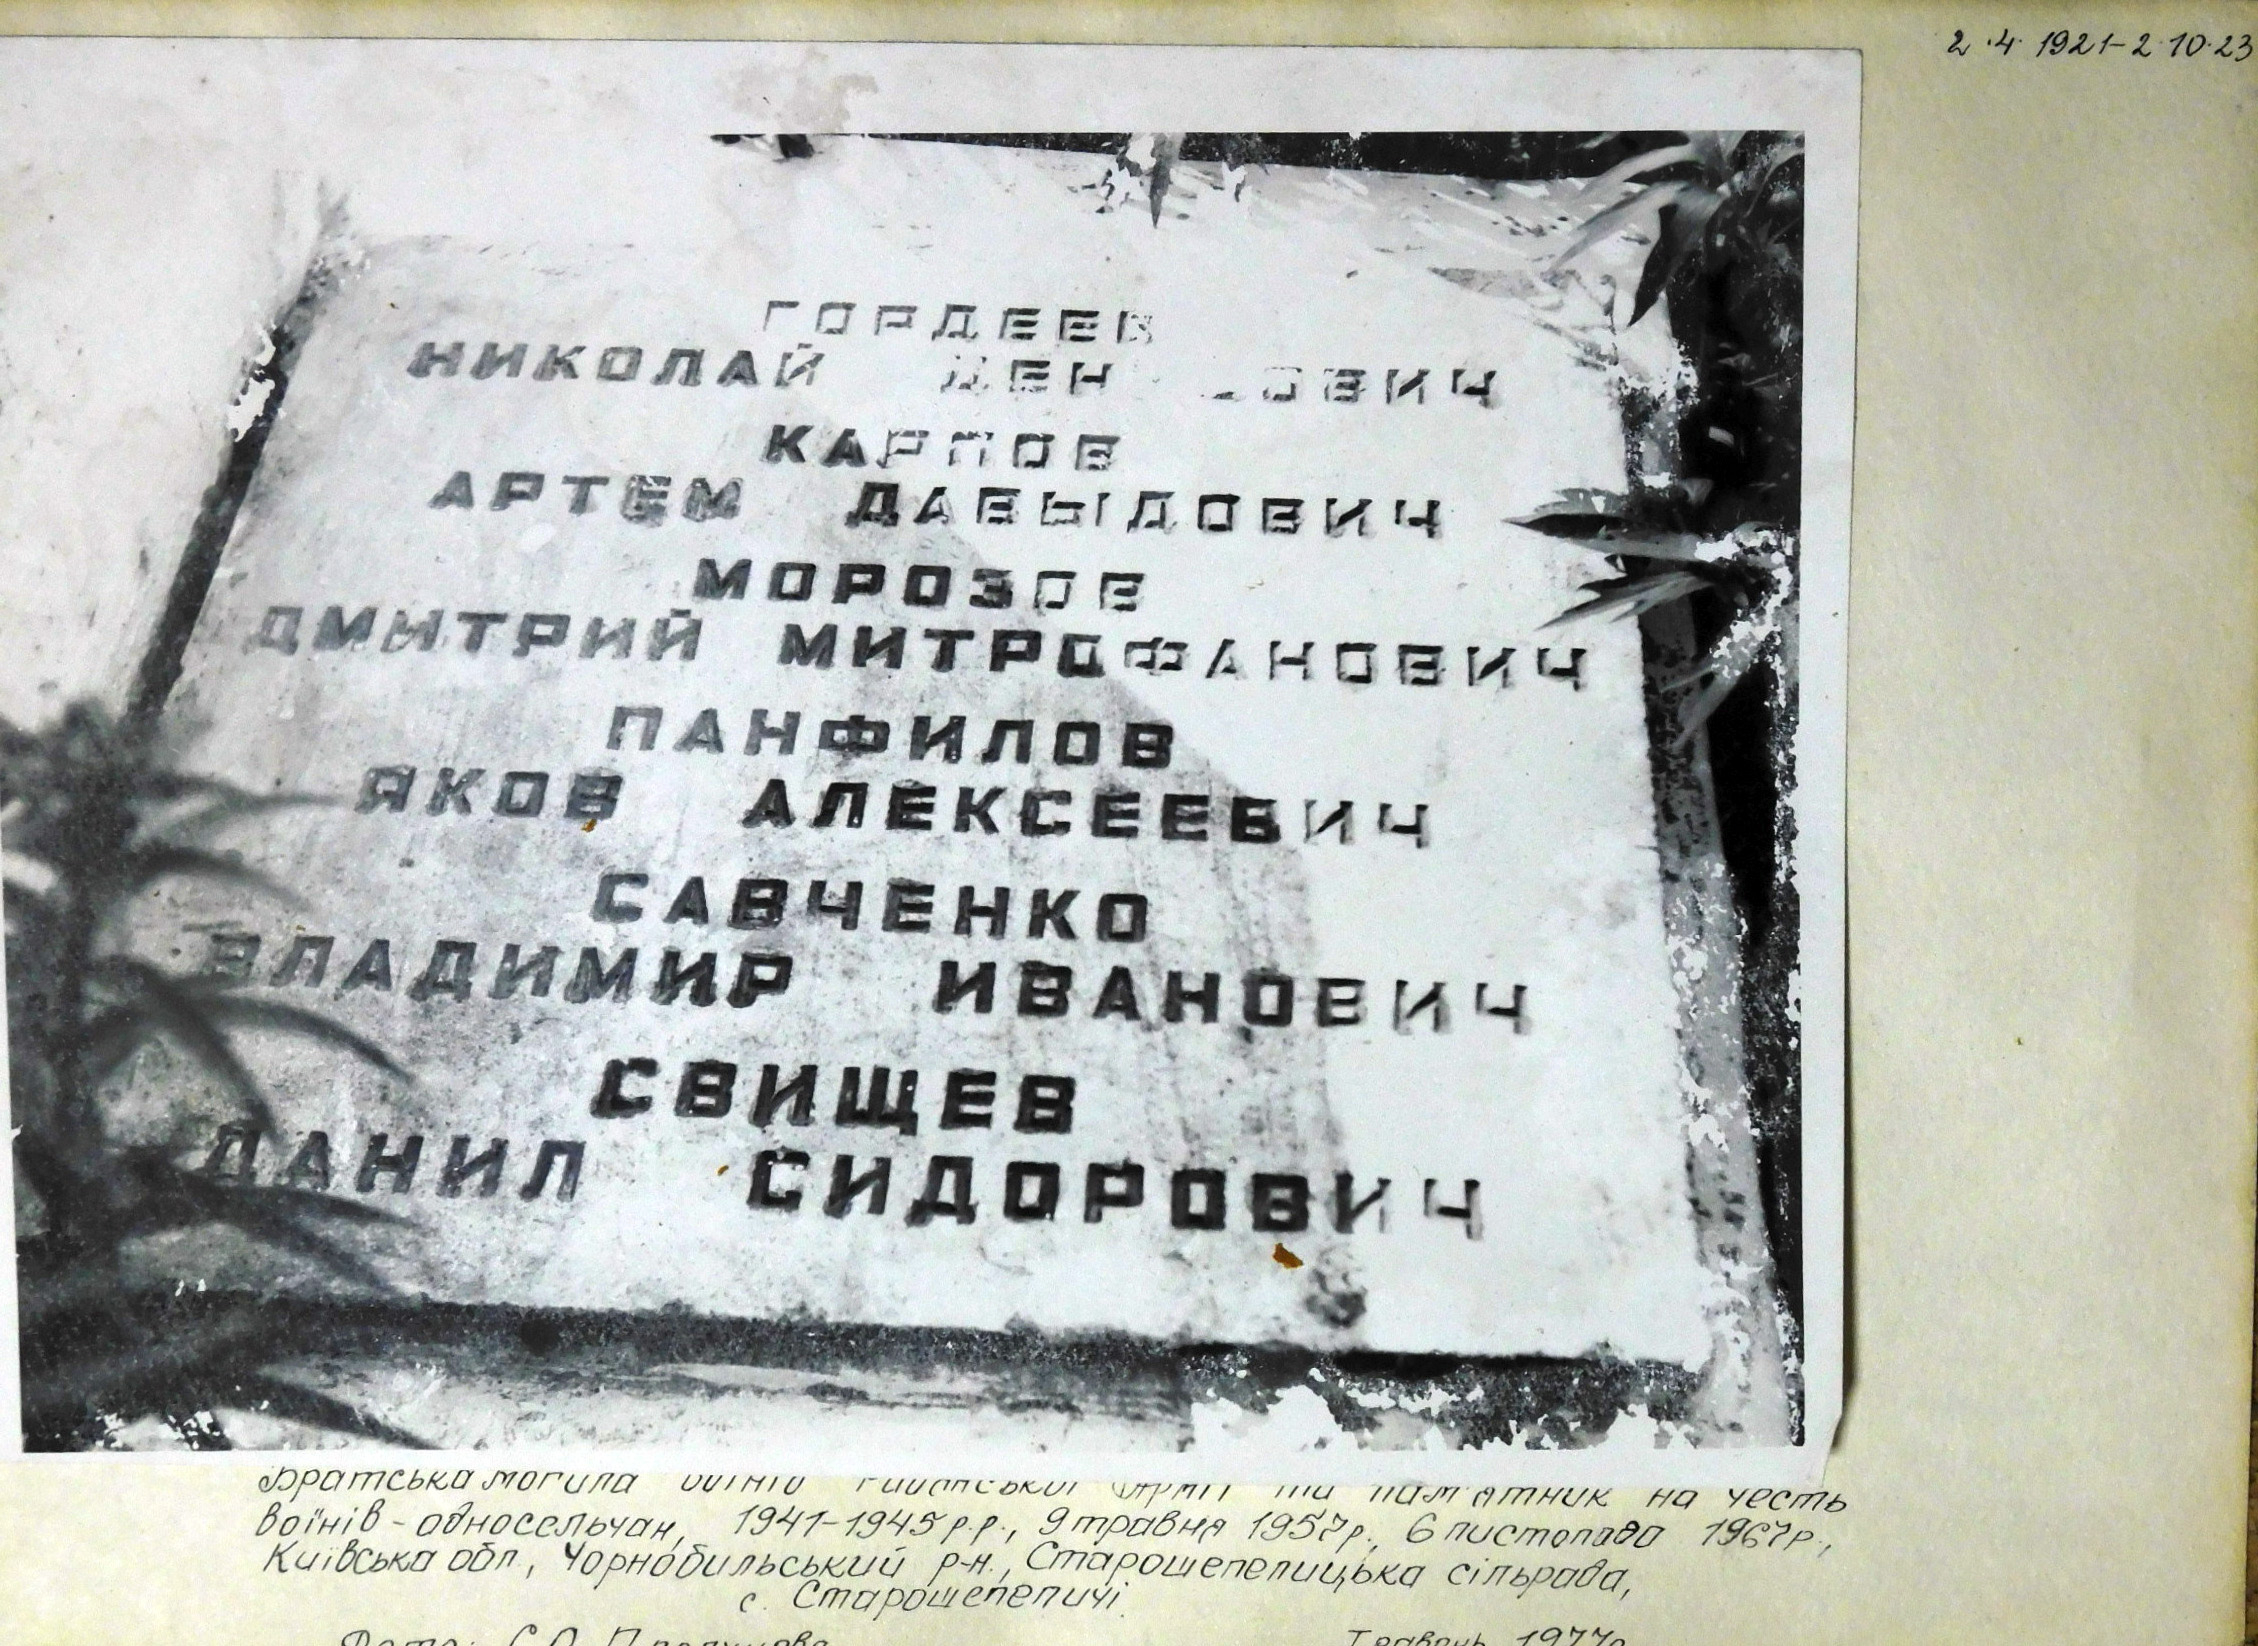 2·4·1921-2·10·23
ГОРДЕЕВ
НИКОЛАЙ
КАРПОВ
АРТЕМ ДАВЫДОВИЧ
МОРОЗОВ
ДМИТРИЙ МИТРОФАНОВИЧ
ПАНФИЛОВ
ЯКОВ АЛЕКСЕЕВИЧ
САВЧЕНКО
ВЛАДИМИР ИВАНОВИЧ
СВИЩЕВ
ДАНИЛ СИДОРОВИЧ
Братська могила воїнів Радянської Армії та пам'ятник на честь
воїнів-односельчан, 1941-1945 р.р., 9 травня 1957р., 6 листопада 1967р.,
Київська обл., Чорнобильський р-н., Старошепелицька сільрада,
с. Старошепеличі.
Фото: С.О. Травень 1977р.